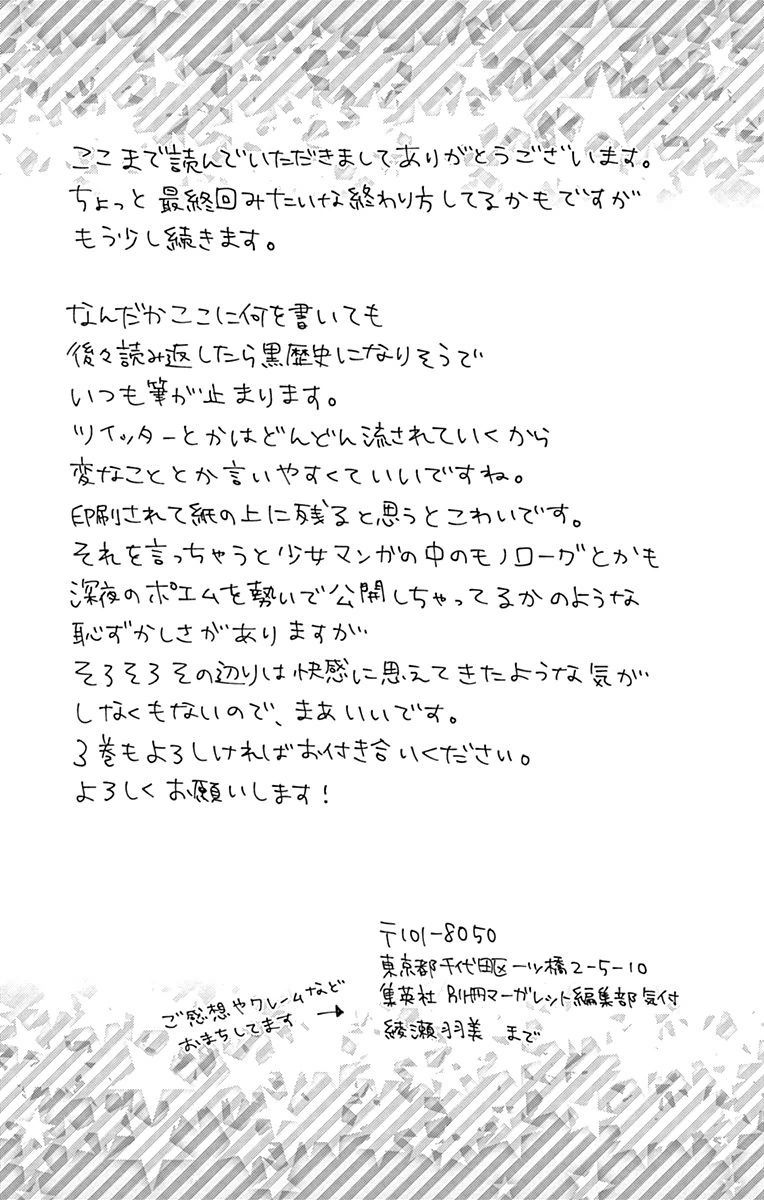 ここまで読んでいただきましてありがとうございます。
ちょっと最終回みたいな終わり方してるかもですが
もう少し続きます。
なんだかここに何を書いても
後々読み返したら黒歴史になりそうで
いつも筆が止まります。
ツイッターとかはどんどん流されていくから
変なこととか言いやすくていいですね。
印刷されて紙の上に残ると思うとこわいです。
それを言っちゃうと少女マンガの中のモノローグとかも
深夜のポエムを勢いで公開しちゃってるかのような
恥ずかしさがありますが
そろそろその辺りは快感に思えてきたような気が
しなくもないので、まあいいです。
3巻もよろしければお付き合いください。
よろしくお願いします!
〒101-8050
東京都千代田区一ツ橋2-5-10
集英社 別冊マーガレット編集部気付
綾瀬羽美 まで
ご感想やクレームなど
おまちしてます →